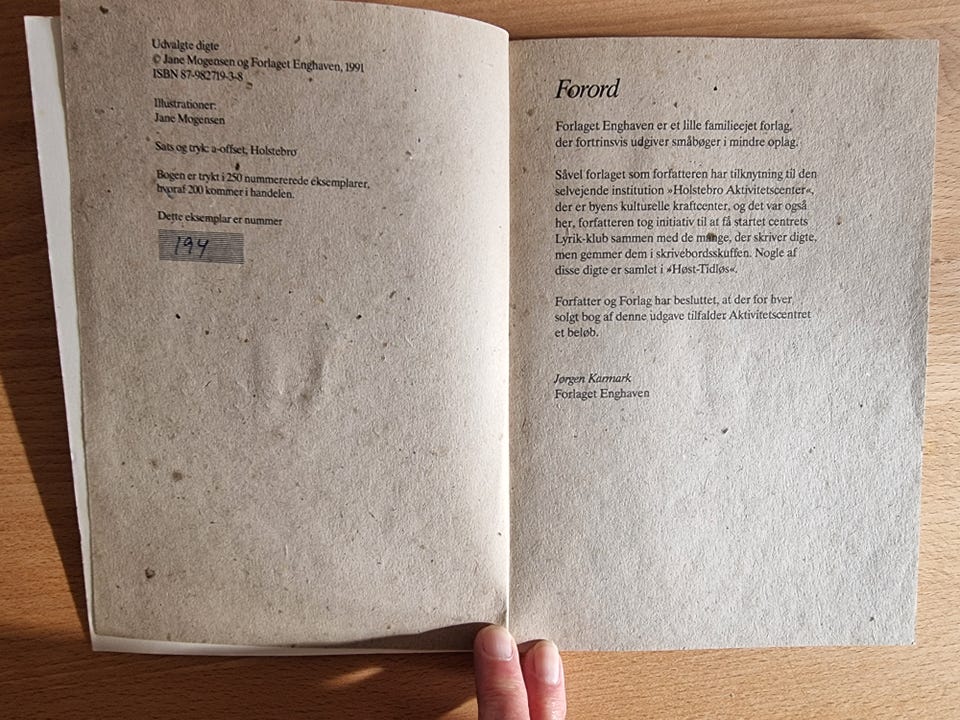 Udvalgte digte
© Jane Mogensen og Forlaget Enghaven, 1991
ISBN 87-982719-3-8
Illustrationer:
Jane Mogensen
Sats og tryk: a-offset, Holstebro
Bogen er trykt i 250 nummererede eksemplarer,
hvoraf 200 kommer i handelen.
Dette eksemplar er nummer
194
Forord
Forlaget Enghaven er et lille familieejet forlag,
der fortrinsvis udgiver småbøger i mindre oplag.
Såvel forlaget som forfatteren har tilknytning til den
selvejende institution »Holstebro Aktivitetscenter«,
der er byens kulturelle kraftcenter, og det var også
her, forfatteren tog initiativ til at få startet centrets
Lyrik-klub sammen med de mange, der skriver digte,
men gemmer dem i skrivebordsskuffen. Nogle af
disse digte er samlet i »Høst-Tidløs«.
Forfatter og Forlag har besluttet, at der for hver
solgt bog af denne udgave tilfalder Aktivitetscentret
et beløb.
Jørgen Karmark
Forlaget Enghaven